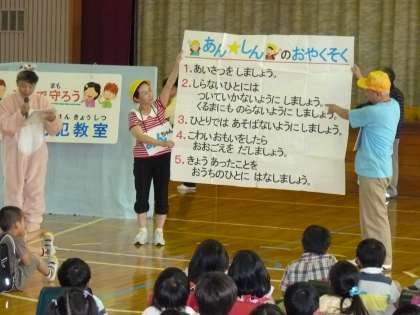 あん★しんのおやくそく
1. あいさつを しましょう。
2. しらないひとには
ついていかないように しましょう。
くるまにも のらないように しましょう。
3. ひとりでは あそばないように しましょう。
4. こわい おもいをしたら
おおごえを だしましょう。
5. きょう あったことを
おうちのひとに はなしましょう。
まも
で守ろう
きょうしつ
犯教室